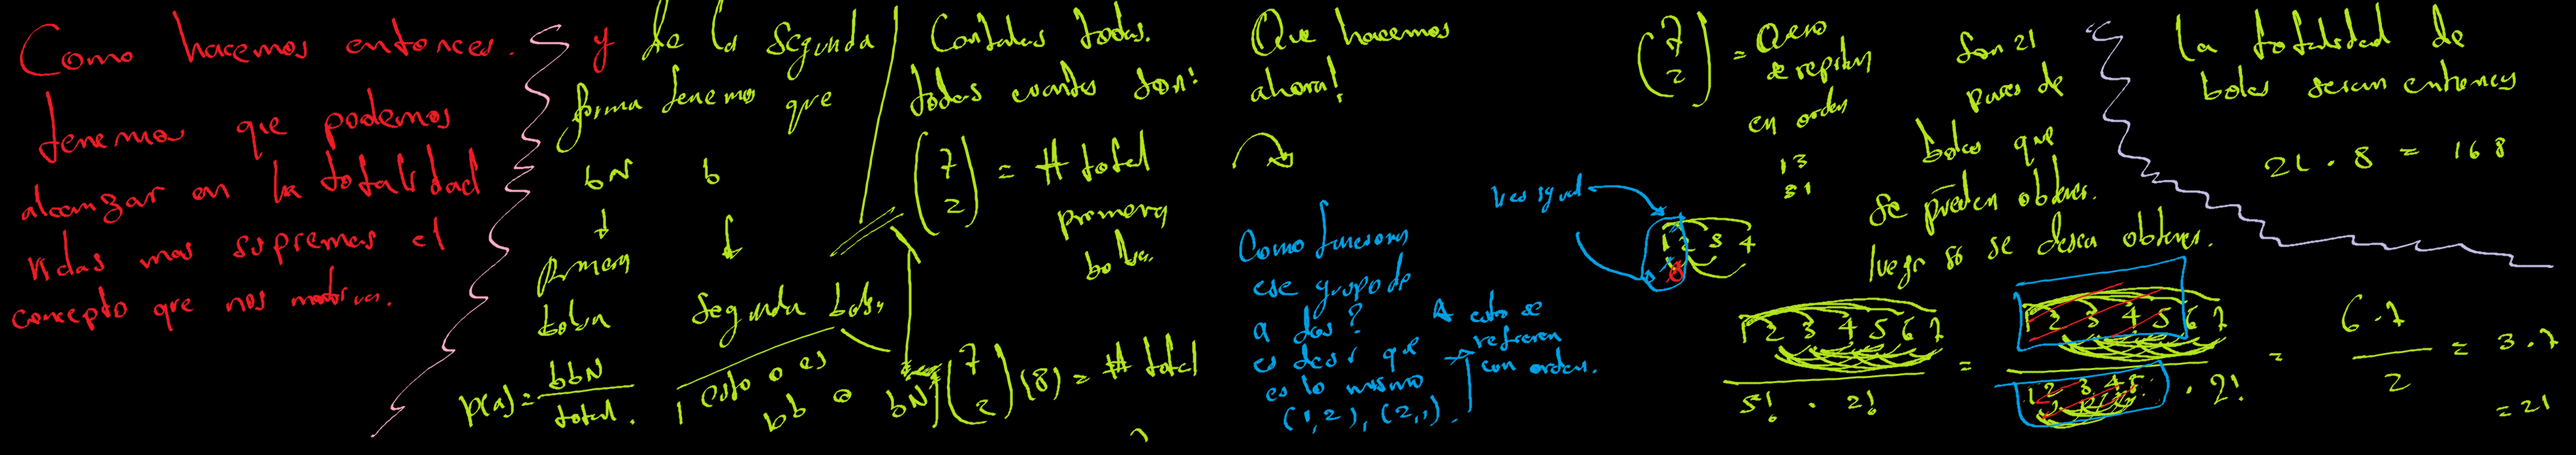 Como hacemos entonces.
tenemos que podemos
alcanzar en la totalidad
vidas mas supremas el
concepto que nos
y de la segunda
forma tenemos que
bN b
primera
bolsa
Segunda bolsa
p(a) = bbN / total.
esto o es
bb o bN
Contalas todas.
todas cuantas son:
(7 2) = # total
primera
bolsa.
(7 2) (8) = # total
Que hacemos
ahora!
Como funciona
ese grupo de
a dos?
es decir que
es lo mismo
(1,2), (2,1).
A esto se
refieren
con orden.
1 2 3 4
(7 2) = Quero
se repitan
en orden
13
31
Son 21
pares de
bolas que
se pueden obtener.
luego si se desea obtener.
1 2 3 4 5 6 7 / 5! . 2! = 1 2 3 4 5 6 7 / 1 2 3 4 5 . 2! = 6 . 7 / 2 = 3 . 7
= 21
La totalidad de
bolas seran entonces
21 . 8 = 168